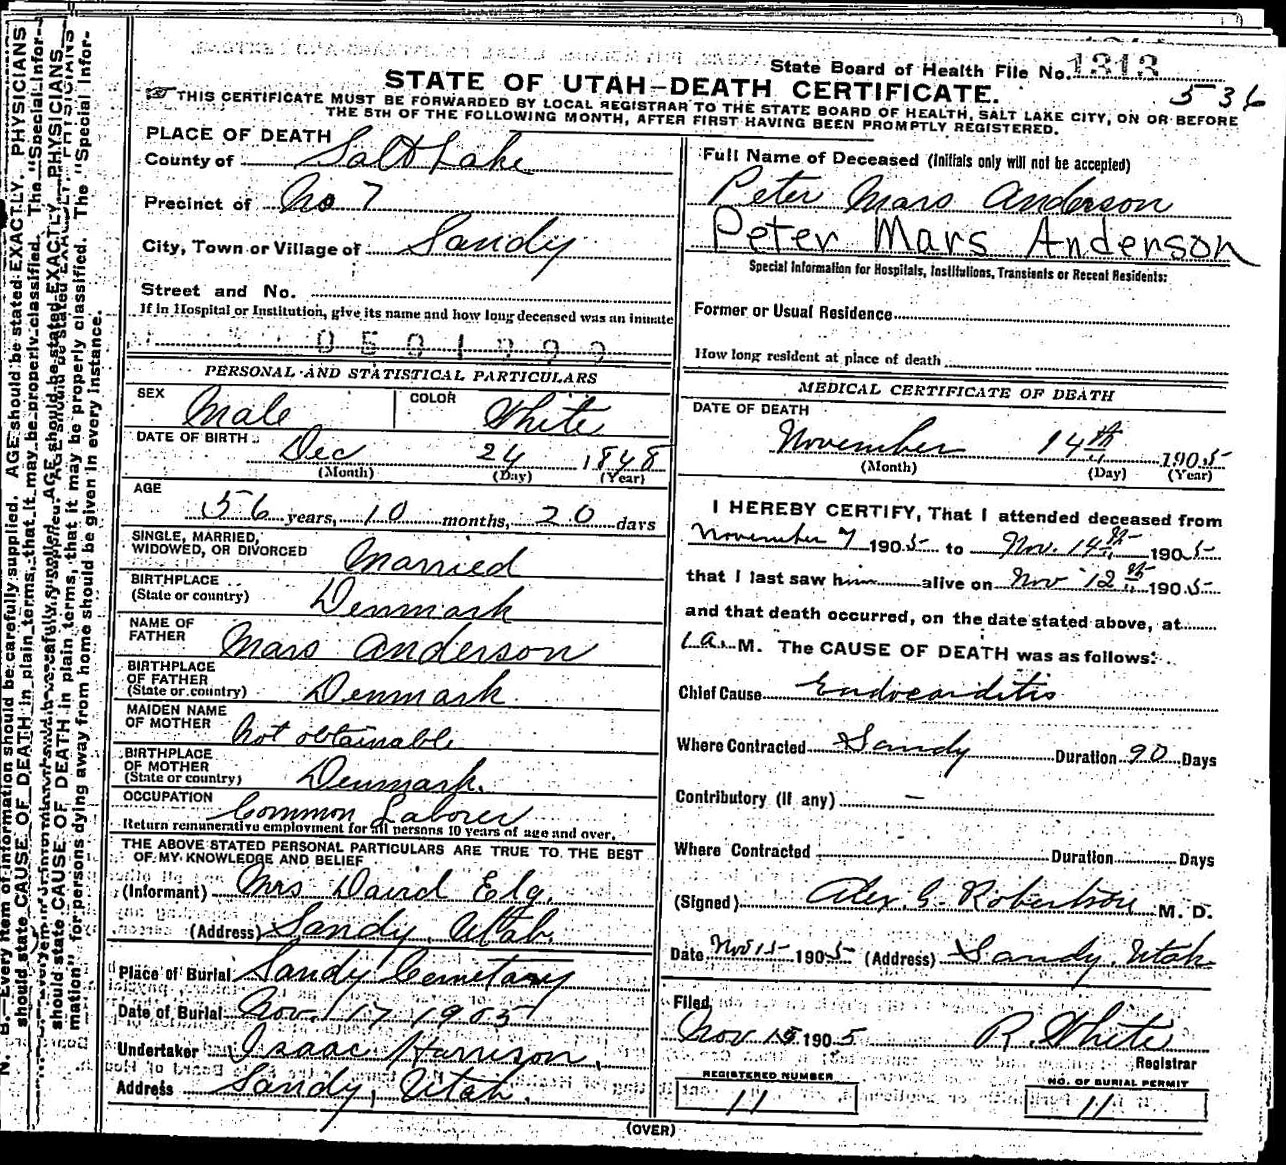 State Board of Health File No. 1313
536
STATE OF UTAH—DEATH CERTIFICATE.
THIS CERTIFICATE MUST BE FORWARDED BY LOCAL REGISTRAR TO THE STATE BOARD OF HEALTH, SALT LAKE CITY, ON OR BEFORE
THE 5TH OF THE FOLLOWING MONTH, AFTER FIRST HAVING BEEN PROMPTLY REGISTERED.
PLACE OF DEATH
County of Salt Lake
Precinct of No 7
City, Town or Village of Sandy
Street and No.
If in Hospital or Institution, give its name and how long deceased was an inmate
0501399
PERSONAL AND STATISTICAL PARTICULARS
SEX Male COLOR White
DATE OF BIRTH Dec 24 1848
(Month) (Day) (Year)
AGE
56 years, 10 months, 20 days
SINGLE, MARRIED,
WIDOWED, OR DIVORCED Married
BIRTHPLACE
(State or country) Denmark
NAME OF
FATHER Mars Anderson
BIRTHPLACE
OF FATHER
(State or country) Denmark
MAIDEN NAME
OF MOTHER Not obtainable
BIRTHPLACE
OF MOTHER
(State or country) Denmark.
OCCUPATION Common Laborer
Return remunerative employment for all persons 10 years of age and over.
THE ABOVE STATED PERSONAL PARTICULARS ARE TRUE TO THE BEST
OF MY KNOWLEDGE AND BELIEF
(Informant) Mrs David Elg.
(Address) Sandy, Utah.
Place of Burial Sandy Cemetary
Date of Burial Nov. 17 1905
Undertaker Isaac Harrison.
Address Sandy, Utah.
Full Name of Deceased (Initials only will not be accepted)
Peter Mars Anderson
Peter Mars Anderson
Special Information for Hospitals, Institutions, Transients or Recent Residents:
Former or Usual Residence
How long resident at place of death
MEDICAL CERTIFICATE OF DEATH
DATE OF DEATH
November 14th 1905
(Month) (Day) (Year)
I HEREBY CERTIFY, That I attended deceased from
November 7 1905 to Nov. 14th 1905
that I last saw him alive on Nov 12th 1905
and that death occurred, on the date stated above, at
1 a. M. The CAUSE OF DEATH was as follows:
Chief Cause Endocarditis
Where Contracted Sandy Duration 90 Days
Contributory (if any) —
Where Contracted Duration Days
(Signed) Alex. G. Robertson M. D.
Date Nov 15 1905 (Address) Sandy, Utah
Filed
Nov 15 1905 R. White
Registrar
REGISTERED NUMBER
11
NO. OF BURIAL PERMIT
11
(OVER)
N. B. Every item of information should be carefully supplied. AGE should be stated EXACTLY. PHYSICIANS
should state CAUSE OF DEATH in plain terms, that it may be properly classified. The "Special Infor-
mation" for persons dying away from home should be given in every instance.